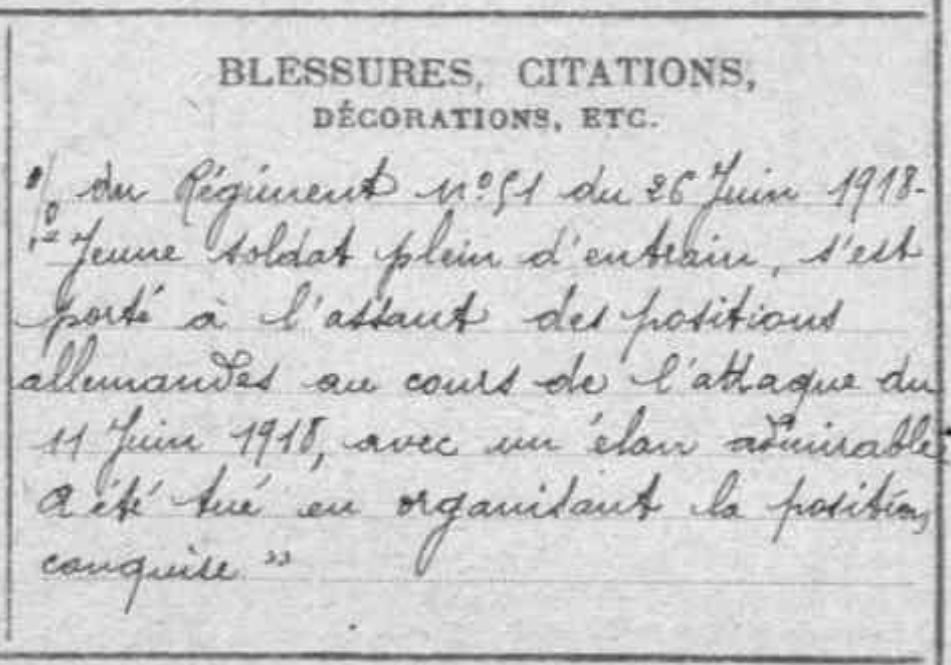 BLESSURES, CITATIONS,
DÉCORATIONS, ETC.
o/o du Régiment n° 51 du 26 Juin 1918-
"Jeune soldat plein d'entrain, s'est
porté à l'assaut des positions
allemandes au cours de l'attaque du
11 Juin 1918, avec un élan admirable
A été tué en organisant la position
conquise"